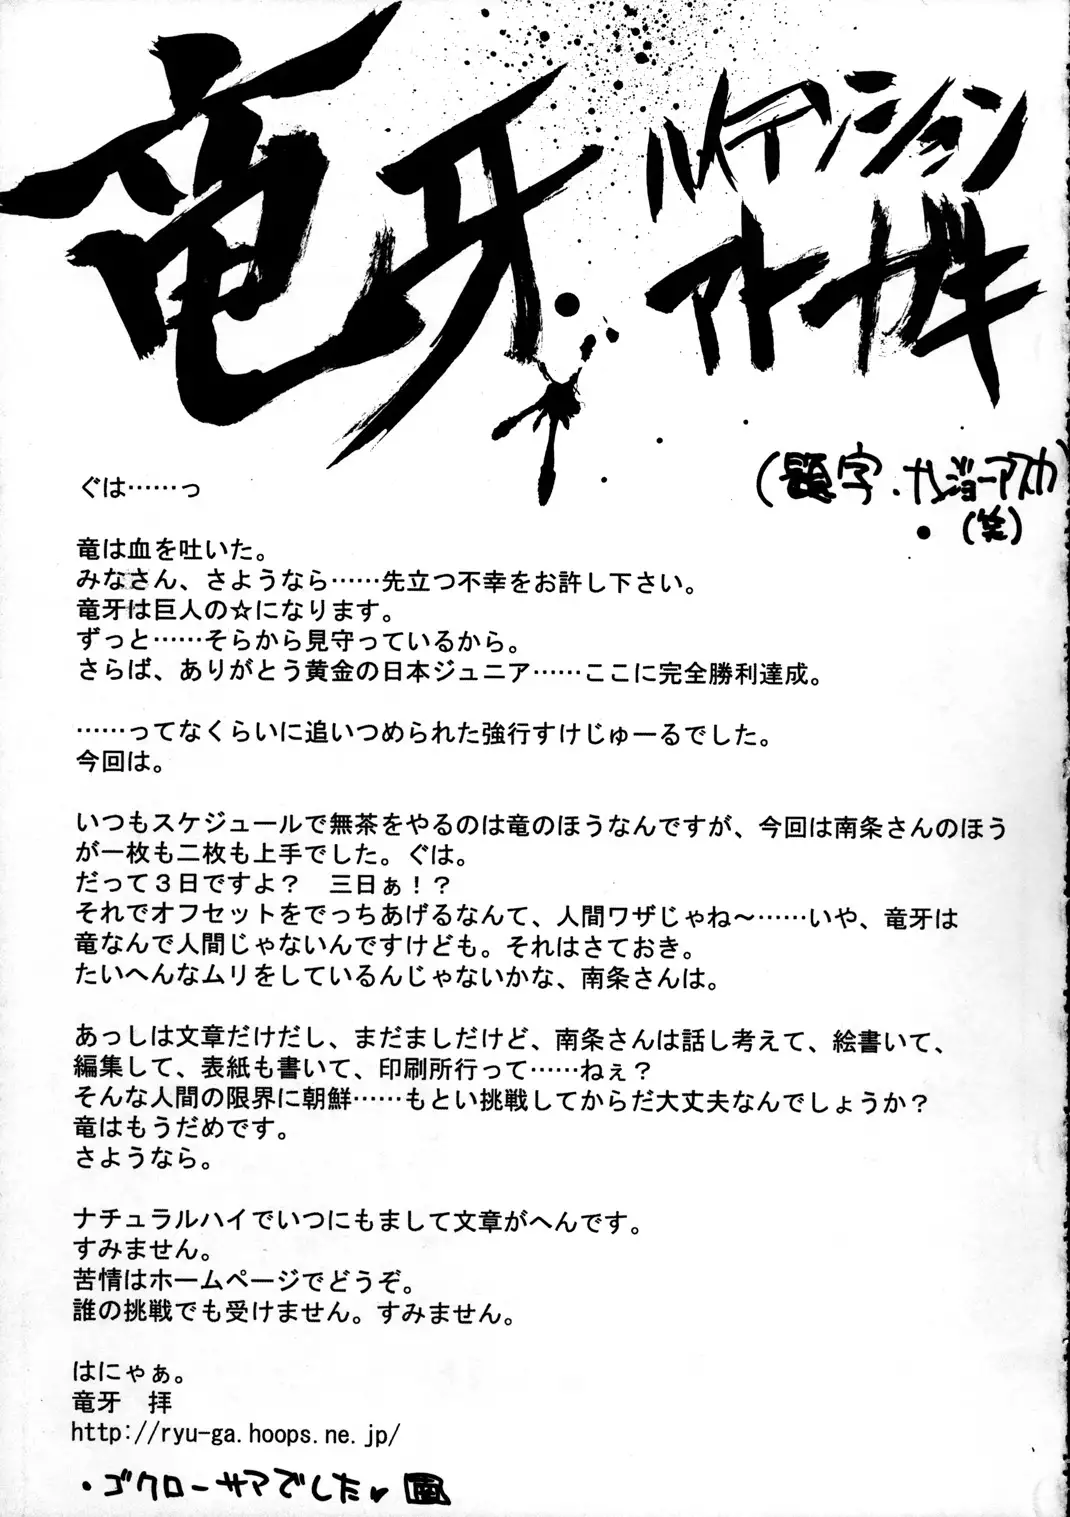 竜牙
アトガキ
(題字.ナンジョーアスカ
(笑)
ぐは……っ
竜は血を吐いた。
みなさん、さようなら……先立つ不幸をお許し下さい。
竜牙は巨人の☆になります。
ずっと……そらから見守っているから。
さらば、ありがとう黄金の日本ジュニア……ここに完全勝利達成。
……ってなくらいに追いつめられた強行すけじゅーるでした。
今回は。
いつもスケジュールで無茶をやるのは竜のほうなんですが、今回は南条さんのほう
が一枚も二枚も上手でした。ぐは。
だって３日ですよ？　三日ぁ！？
それでオフセットをでっちあげるなんて、人間ワザじゃね～……いや、竜牙は
竜なんで人間じゃないんですけども。それはさておき。
たいへんなムリをしているんじゃないかな、南条さんは。
あっしは文章だけだし、まだましだけど、南条さんは話し考えて、絵書いて、
編集して、表紙も書いて、印刷所行って……ねぇ？
そんな人間の限界に朝鮮……もとい挑戦してからだ大丈夫なんでしょうか？
竜はもうだめです。
さようなら。
ナチュラルハイでいつにもまして文章がへんです。
すみません。
苦情はホームページでどうぞ。
誰の挑戦でも受けません。すみません。
はにゃぁ。
竜牙　拝
http://ryu-ga.hoops.ne.jp/
・ゴクローサマでした♥